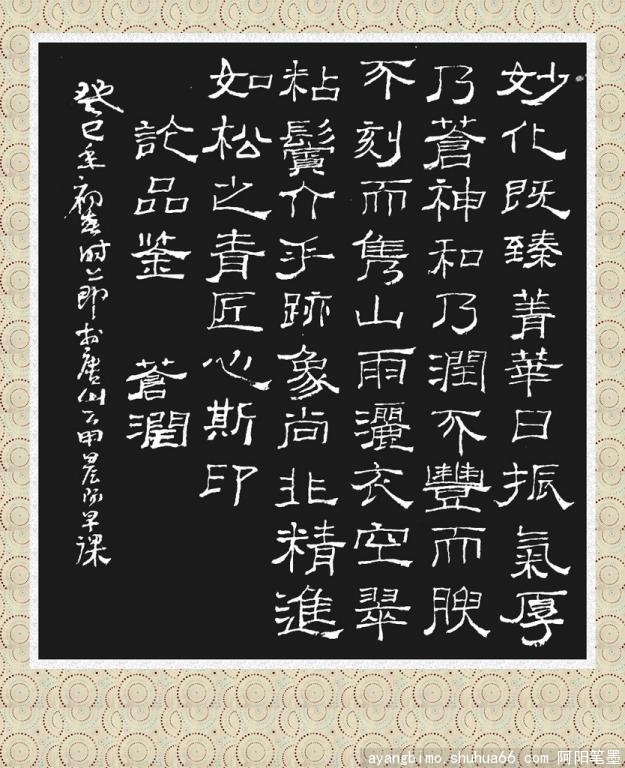 妙化既臻菁華日振氣厚
乃蒼神和乃潤不豐而腴
不刻而雋山雨灑衣空翠
粘鬢介乎跡象尚非精進
如松之青匠心斯印
論品鉴 蒼潤
癸巳年初春时节
於唐山
早课
ayangbimo.shuhua66.com 阿阳笔墨